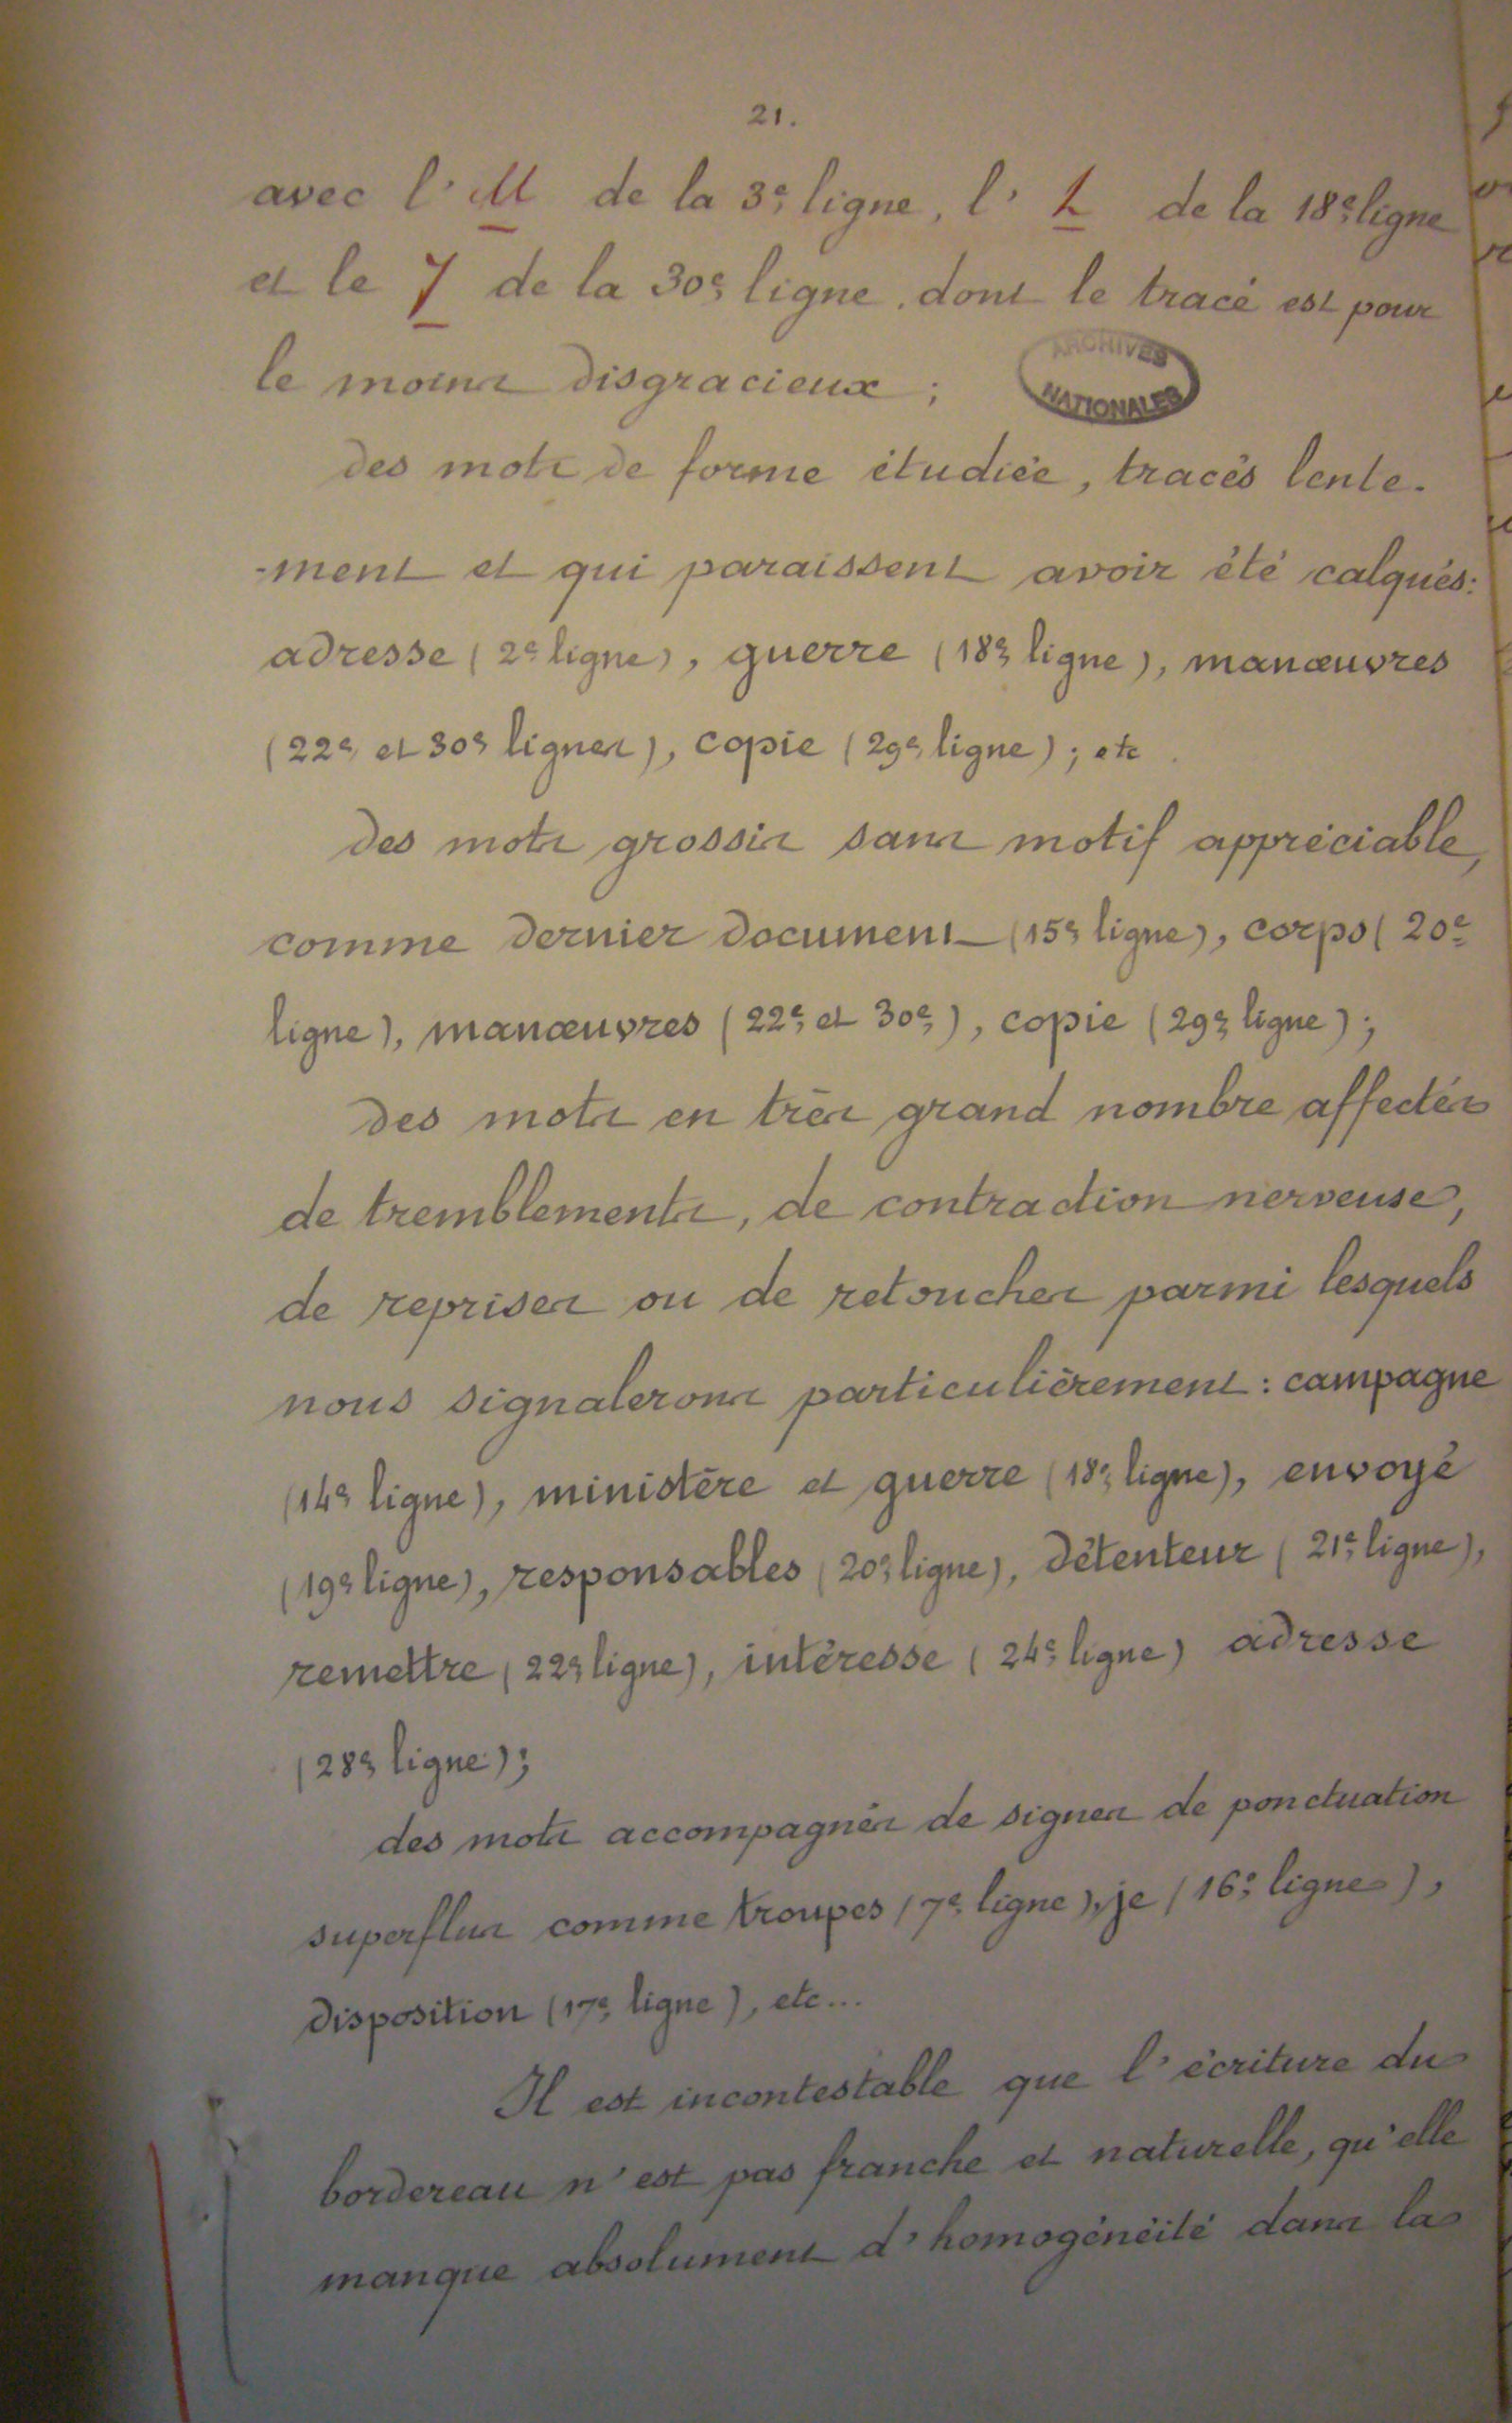 21.
avec l'M de la 3e ligne, l' L de la 18e ligne
et le J de la 30e ligne, dont le tracé est pour
le moins disgracieux ;
ARCHIVES
NATIONALES
des mots de forme étudiée, tracés lente-
-ment et qui paraissent avoir été calqués:
adresse (2e ligne), guerre (18e ligne), manœuvres
(22e et 30e lignes), copie (29e ligne) ; etc.
des mots grossis sans motif appréciable,
comme dernier document (15e ligne), corps (20e
ligne), manœuvres (22e et 30e), copie (29e ligne) ;
des mots en très grand nombre affectés
de tremblements, de contraction nerveuse,
de reprises ou de retouches parmi lesquels
nous signalerons particulièrement : campagne
(14e ligne), ministère et guerre (18e ligne), envoyé
(19e ligne), responsables (20e ligne), détenteur (21e ligne),
remettre (22e ligne), intéresse (24e ligne) adresse
(28e ligne) ;
des mots accompagnés de signes de ponctuation
superflus comme troupes (7e ligne), je (16e ligne),
disposition (17e ligne), etc...
Il est incontestable que l'écriture du
bordereau n'est pas franche et naturelle, qu'elle
manque absolument d'homogénéité dans la